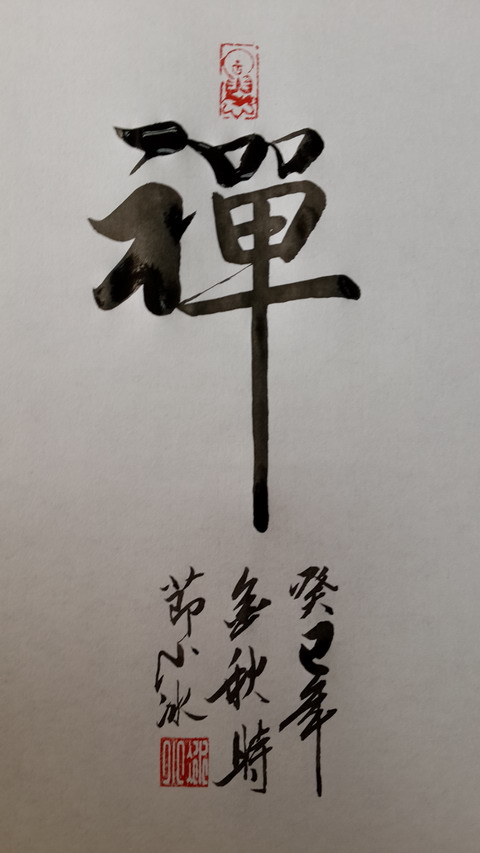 禪
癸巳年
金秋時
節小冰